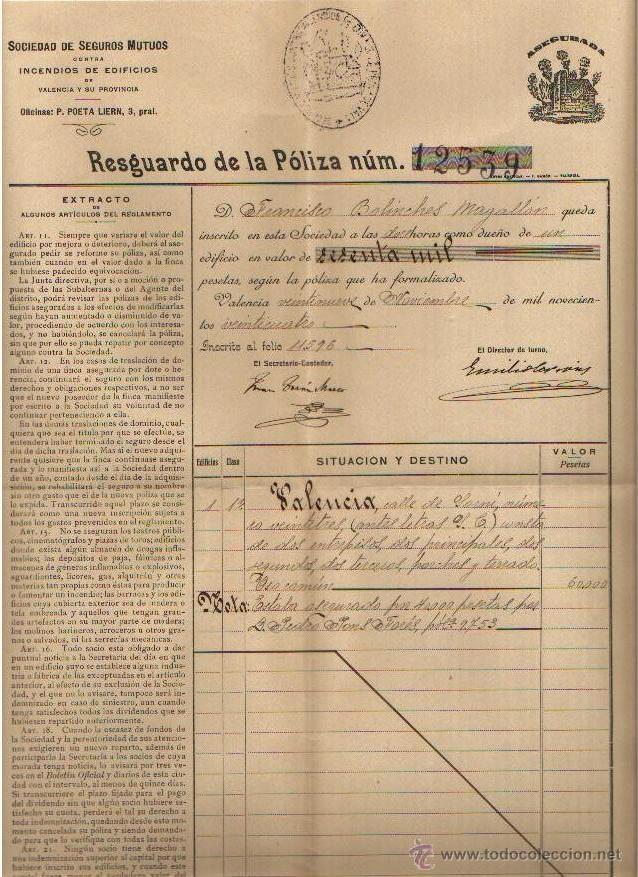 SOCIEDAD DE SEGUROS MUTUOS
CONTRA
INCENDIOS DE EDIFICIOS
DE
VALENCIA Y SU PROVINCIA
Oficinas: P. POETA LIERN, 3, pral.
ASEGURADA
Resguardo de la Póliza núm. 12539
EXTRACTO
DE
ALGUNOS ARTÍCULOS DEL REGLAMENTO
ART. 11. Siempre que variare el valor del
edificio por mejora o deterioro, deberá el ase-
gurado pedir se reforme su póliza, así como
también cuando en el valor dado a la finca
se hubiese padecido equivocación.
La Junta directiva, por sí o a moción o pro-
puesta de las Subalternas o del Agente del
distrito, podrá revisar las pólizas de los edifi-
cios asegurados a los efectos de modificarlas
según hayan aumentado o disminuido de va-
lor, procediendo de acuerdo con los interesa-
dos, y no habiéndolo, se cancelará la póliza,
sin que por ello se pueda repartir por concepto
alguno contra la Sociedad.
ART. 12. En los casos de traslación de do-
minio de una finca asegurada por dote o he-
rencia, continuará el seguro con los mismos
derechos y obligaciones respectivos, a no ser
que el nuevo poseedor de la finca manifieste
por escrito a la Sociedad su voluntad de no
continuar perteneciendo a ella.
En las demás traslaciones de dominio, cual-
quiera que sea el título por que se efectúe, se
entenderá haber terminado el seguro desde el
día de dicha traslación. Mas si el nuevo adqui-
rente quisiere que la finca continuase asegu-
rada y lo manifiesta así a la Sociedad dentro
de un año, contado desde el día de la adquisi-
ción, se rehabilitará el seguro a su nombre
sin otro gasto que el de la nueva póliza que se
le expida. Transcurrido aquel plazo se consi-
derará como una nueva inscripción sujeta a
todos los gastos prevenidos en el reglamento.
ART. 15. No se aseguran los teatros públi-
cos, cinematógrafos y plazas de toros; edificios
donde exista algún almacén de drogas infla-
mables; los depósitos de paja, fábricas o al-
macenes de géneros inflamables o explosivos,
aguardientes, licores, gas, alquitrán y otras
materias tan propias como éstas para producir
o fomentar un incendio; las barracas y los edifi-
cios cuya cubierta exterior sea de madera o
tela embreada y aquellos que tengan gran-
des artefactos en su mayor parte de madera;
los molinos harineros, arroceros u otros gra-
nos o salvados, ni las serrerías mecánicas.
ART. 16. Todo socio está obligado a dar
puntual noticia a la Secretaría del día en que
en un edificio suyo se establece alguna indus-
tria o fábrica de las exceptuadas en el artículo
anterior, al efecto de su exclusión de la Socie-
dad, y el que no lo avisare, tampoco será in-
demnizado en caso de siniestro, aun cuando
tenga satisfechos todos los dividendos que se
hubiesen repartido anteriormente.
ART. 18. Cuando la escasez de fondos de
la Sociedad y la perentoriedad de sus atencio-
nes exigieren un nuevo reparto, además de
participarla la Secretaría a los socios de cuya
morada tenga noticia, lo avisará por tres ve-
ces en el Boletín Oficial y diarios de esta ciu-
dad con el intervalo, al menos de quince días.
Si transcurriere el plazo fijado para el pago
del dividendo sin que algún socio hubiere sa-
tisfecho su cuota, perderá el tal su derecho a
toda indemnización, quedando desde este mo-
mento cancelada su póliza y siendo demanda-
do para que lo verifique con todas las costas.
ART. 21. Ningún socio tiene derecho a
una indemnización superior al capital por que
hubiere inscrito sus edificios, y cuando este
D. Francisco Bolinches Magallón queda
inscrito en esta Sociedad a las doce horas como dueño de un
edificio en valor de sesenta mil
pesetas, según la póliza que ha formalizado.
Valencia veintinueve de Noviembre de mil novecien-
tos veinticuatro
Inscrito al folio 11596
El Secretario-Contador. El Director de turno,
Edificios Clase SITUACION Y DESTINO VALOR
Pesetas
1 1ª Valencia, calle de Sorní, núme-
ro veintitres, (antes letras P. C.) consta
de dos entrepisos, dos principales, dos
segundos, dos terceros, porches y terrado.
60.000
Nota: Estaba asegurado por 4000 pesetas por
D. Pedro Pons póliza 9753
© www.todocoleccion.net